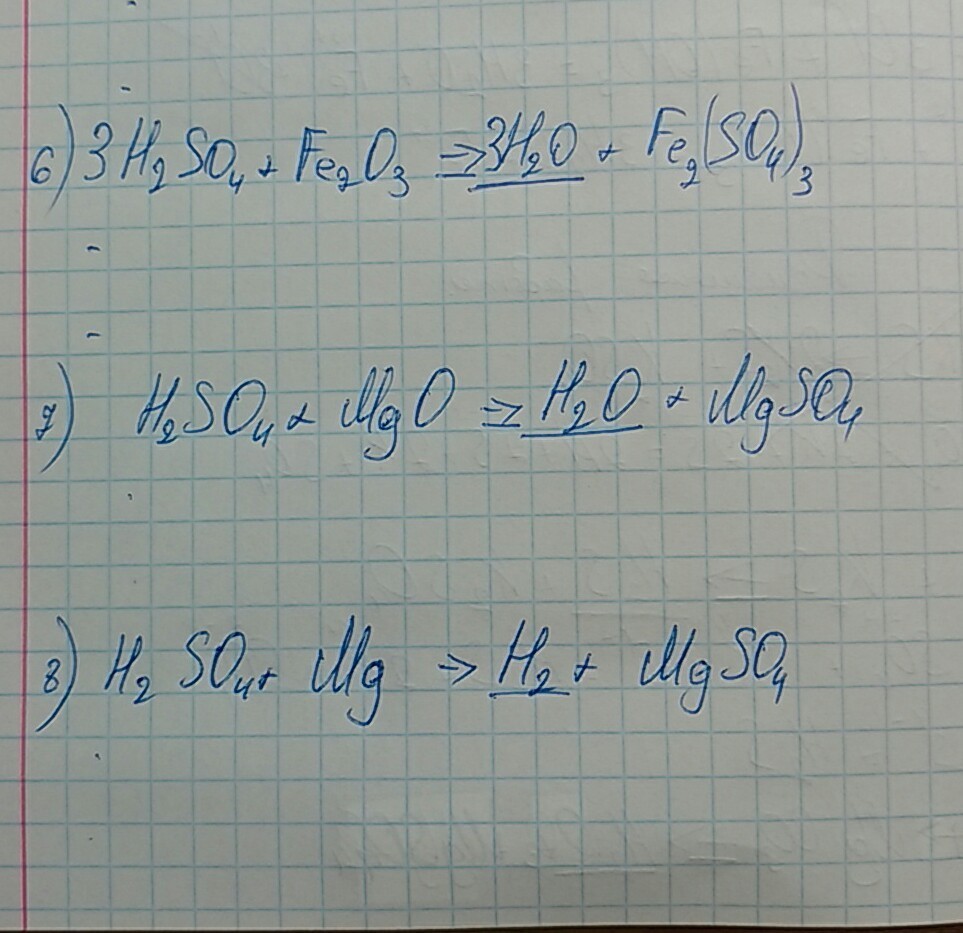 6) 3H₂SO₄ + Fe₂O₃ ⇒ 3H₂O + Fe₂(SO₄)₃
7) H₂SO₄ + MgO ⇒ H₂O + MgSO₄
8) H₂SO₄ + Mg ⇒ H₂ + MgSO₄